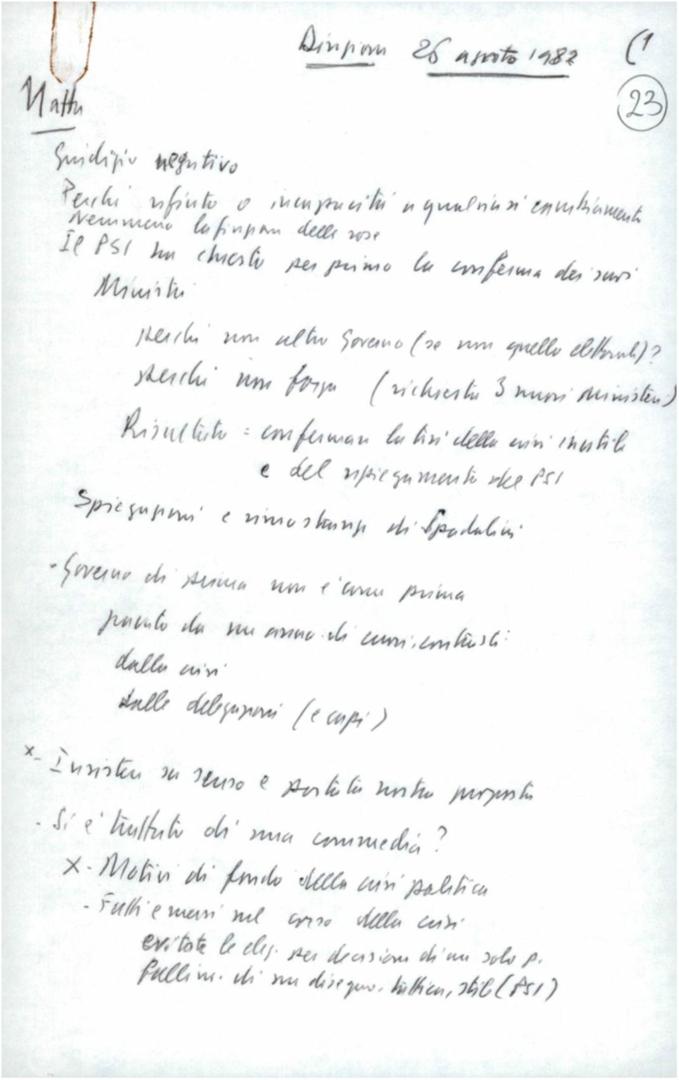 Direzione 26 agosto 1982 (1
23
Natta
Giudizio negativo
Perché rifiuto o incapacità a qualsiasi cambiamento
nemmeno la finzione delle rose
Il PSI ha chiesto per primo la conferma dei suoi
Ministri
perché non altro Governo (se non quello elettorale)?
perché non forza (richiesta 3 nuovi ministeri)
Risultato = confermare la tesi della crisi inutile
e del ripiegamento del PSI
Spiegazioni e rimostranze di Spadolini
- Governo di prima non è come prima
da un anno di contrasti
dalla crisi
dalle delegazioni (e capi)
x- Insistere su senso e portata nostra proposta
- Si è trattato di una commedia?
X- Motivi di fondo della crisi politica
- Fatti emersi nel corso della crisi
evitate le elez. per decisione di un solo p.
fallim. di un disegno, tattica, stile (PSI)